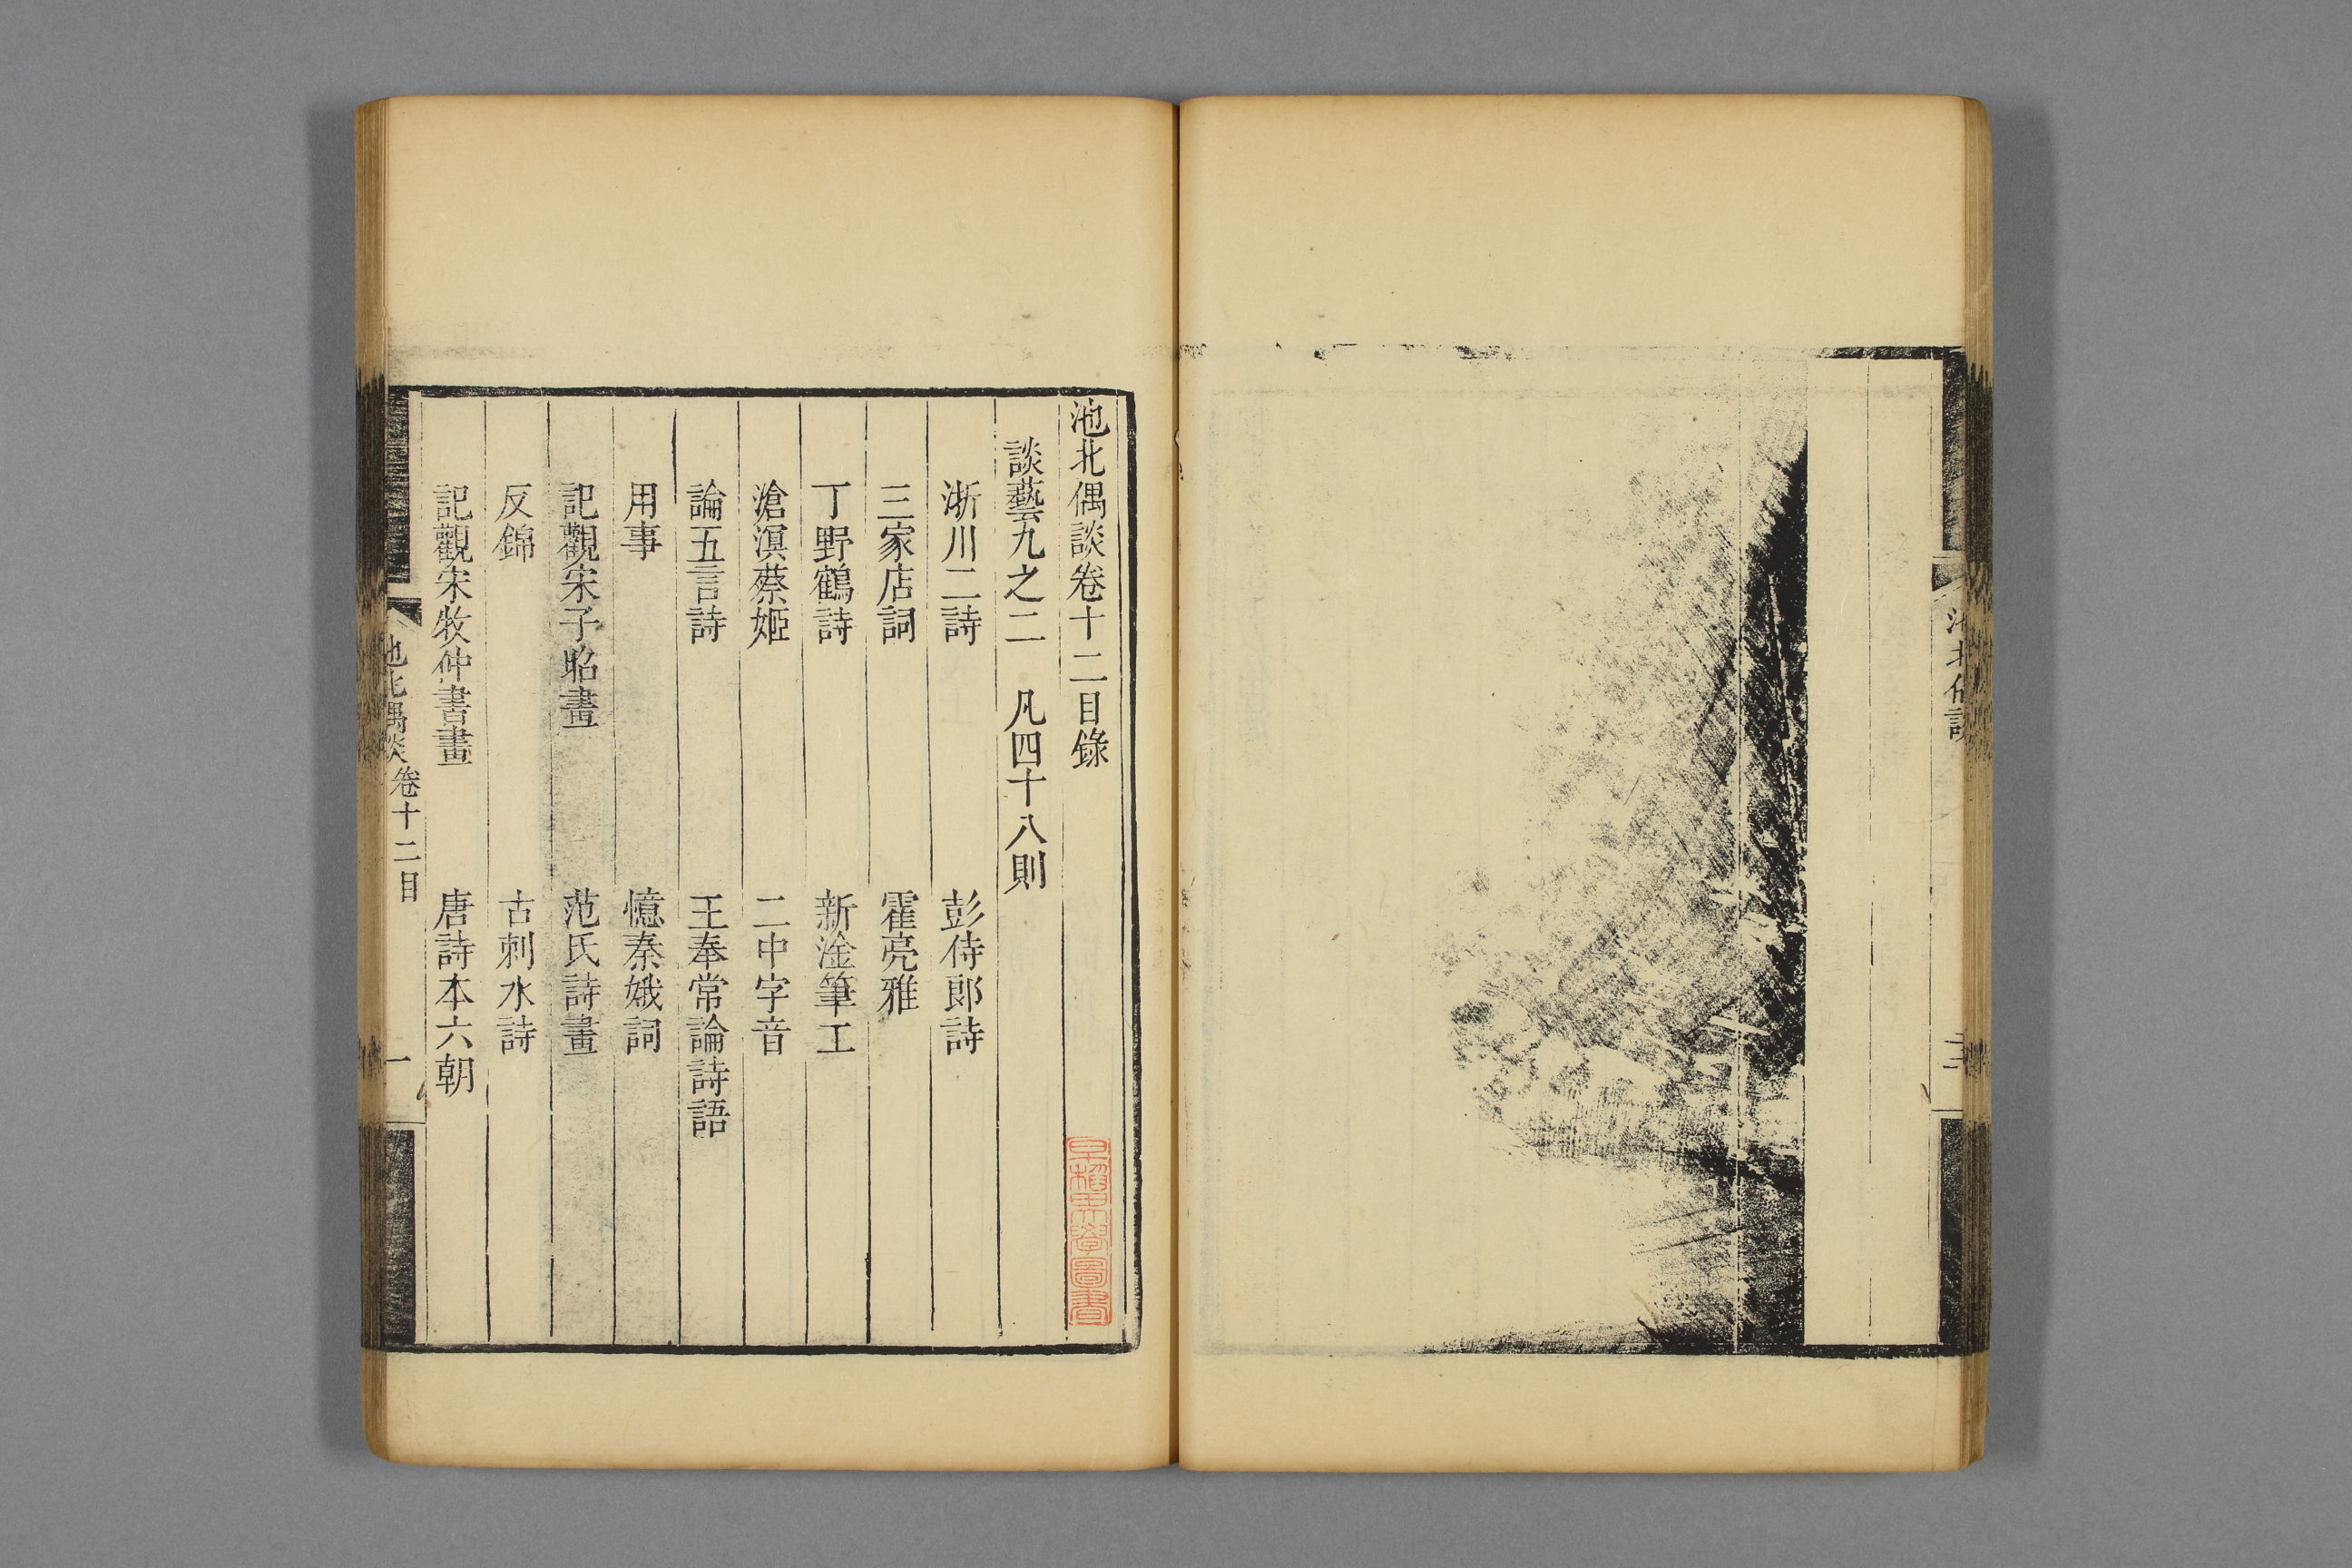 池北偶談卷十二目錄
談藝九之二　凡四十八則
淅川二詩　彭侍郎詩
三家店詞　霍亮雅
丁野鶴詩　新淦筆工
滄溟蔡姬　二中字音
論五言詩　王奉常論詩語
用事　憶秦娥詞
記觀宋子昭畫　范氏詩畫
反錦　古刺水詩
記觀宋牧仲書畫　唐詩本六朝
池北偶談卷十二目　一
早稻田大學圖書